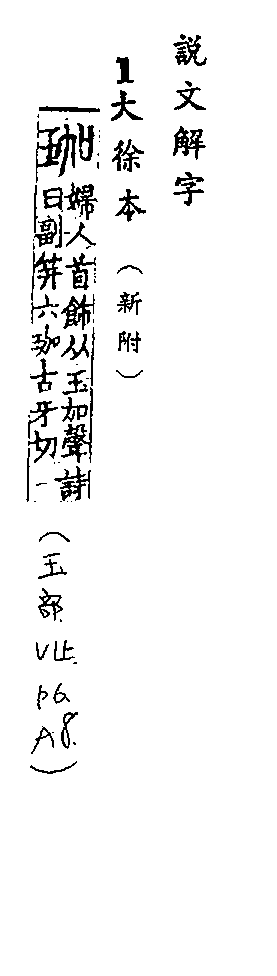 説文解字
1大徐本(新附)
珈 婦人首飾从玉加聲詩
曰副笄六珈古牙切一
(玉部
V1上
p6
A8.)